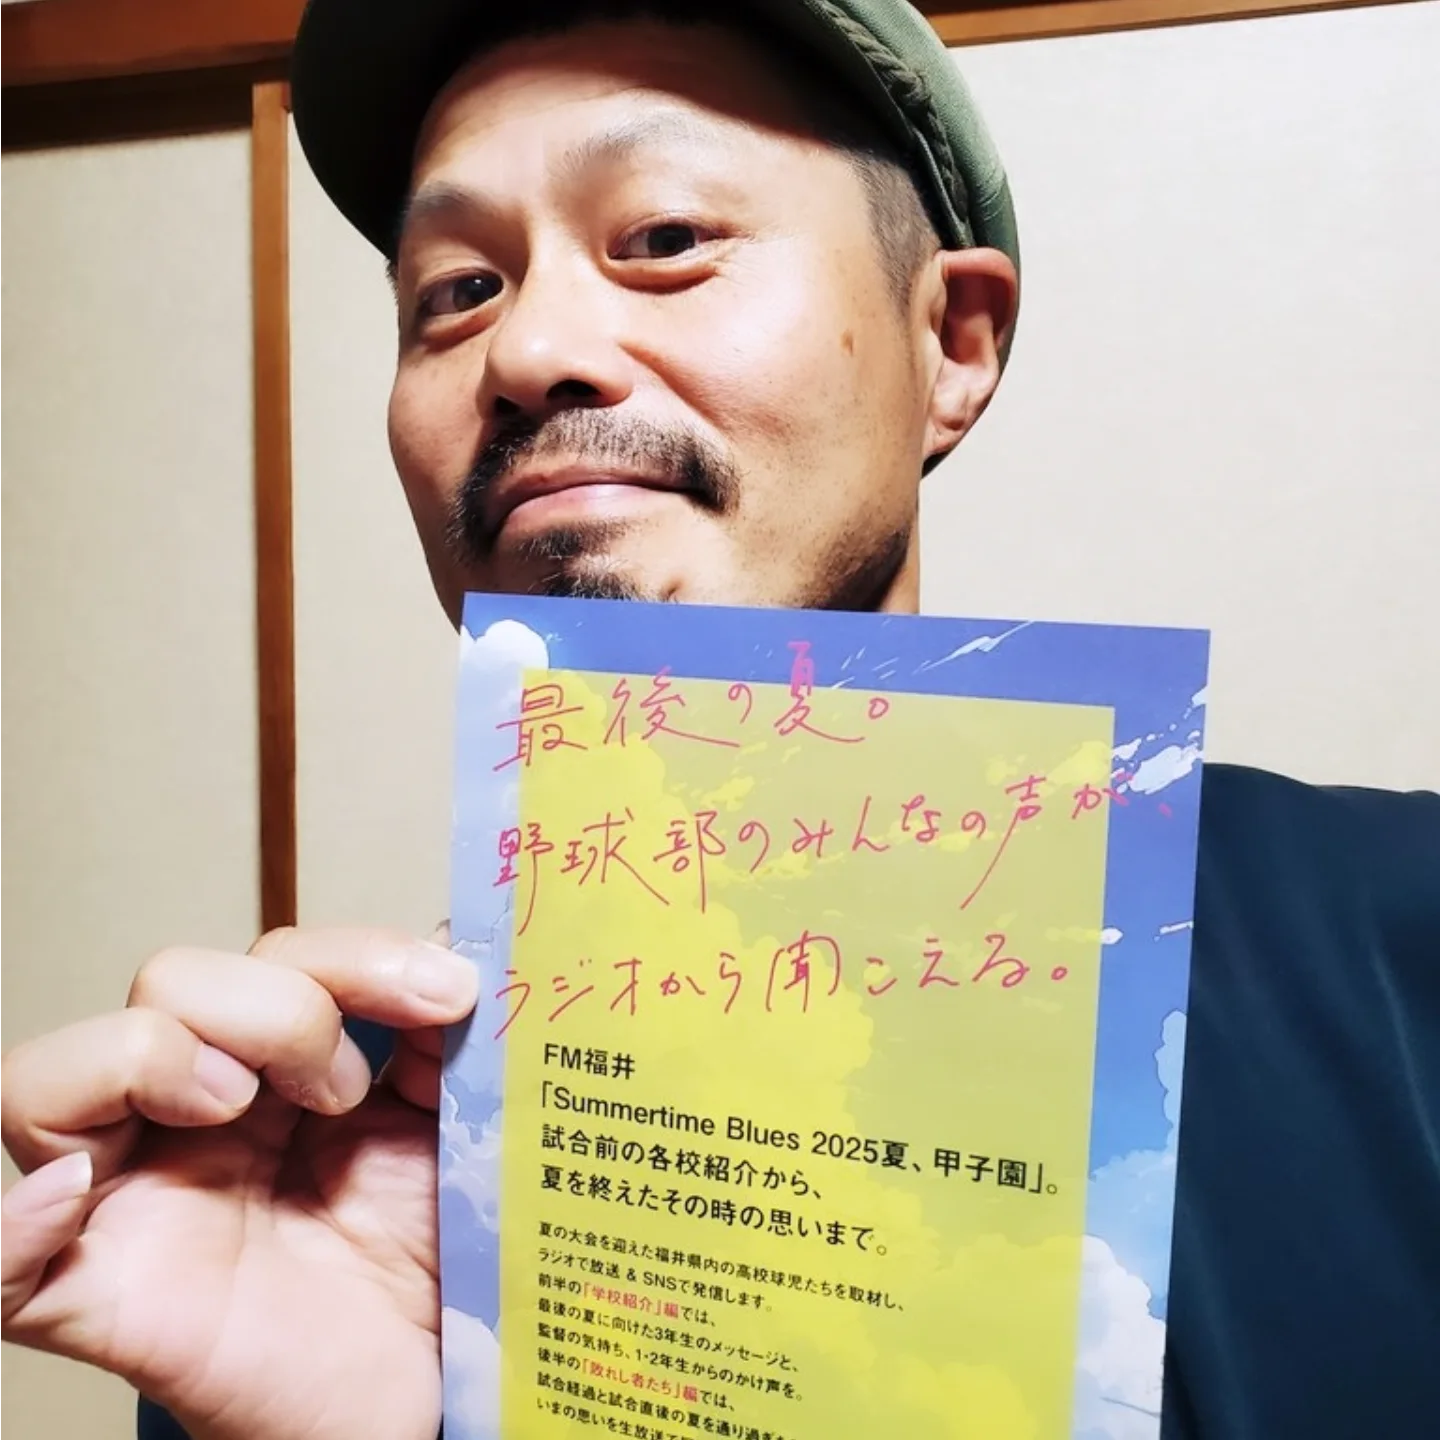 最後の夏。
野球部のみんなの声が、
ラジオから聞こえる。
FM福井
「Summertime Blues 2025夏、甲子園」。
試合前の各校紹介から、
夏を終えたその時の思いまで。
夏の大会を迎えた福井県内の高校球児たちを取材し、
ラジオで放送 & SNSで発信します。
前半の「学校紹介」編では、
最後の夏に向けた3年生のメッセージと、
監督の気持ち、1・2年生からのかけ声を。
後半の「敗れし者たち」編では、
試合経過と試合直後の夏を通り過ぎた
いまの思いを生放送で